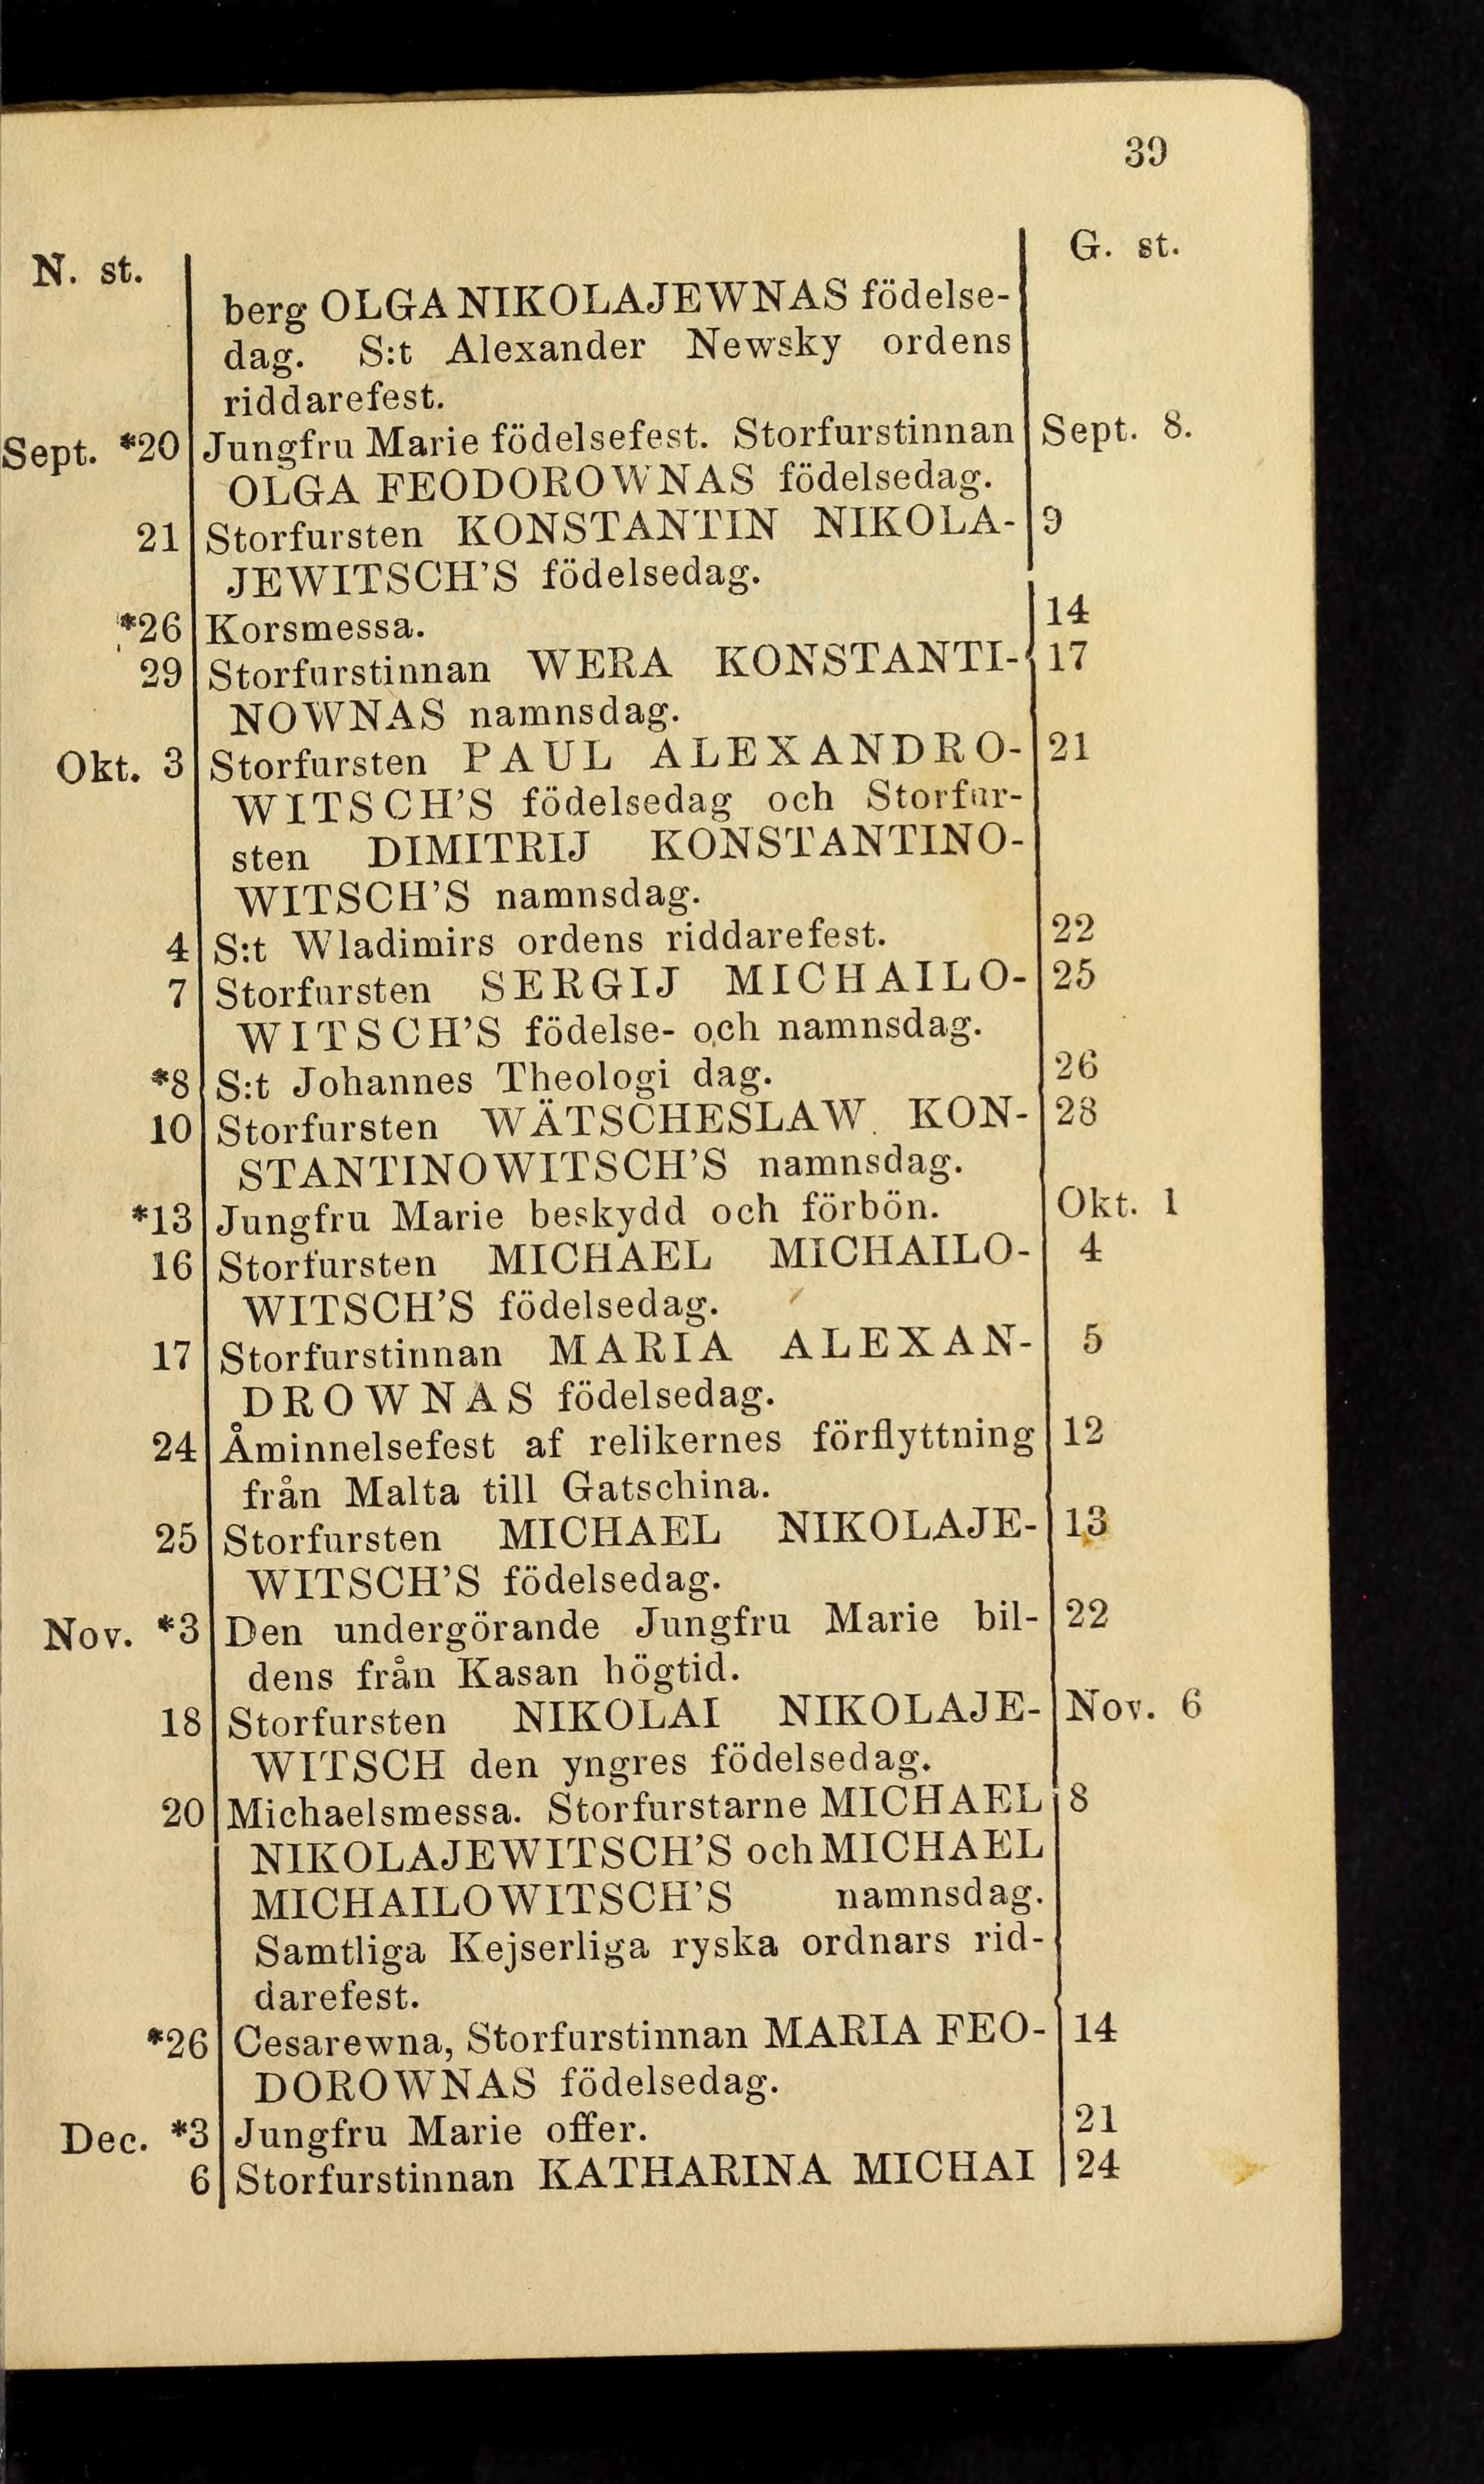 39
N. st. G. st.
berg OLGA NIKOLAJEWNAS födelse-
dag. S:t Alexander Newsky ordens
riddarefest.
Sept. *20 Jungfru Marie födelsefest. Storfurstinnan Sept. 8.
OLGA FEODOROWNAS födelsedag.
21 Storfursten KONSTANTIN NIKOLA- 9
JEWITSCH'S födelsedag.
*26 Korsmessa. 14
29 Storfurstinnan WERA KONSTANTI- 17
NOWNAS namnsdag.
Okt. 3 Storfursten PAUL ALEXANDRO- 21
WITSCH'S födelsedag och Storfur-
sten DIMITRIJ KONSTANTINO-
WITSCH'S namnsdag.
4 S:t Wladimirs ordens riddarefest. 22
7 Storfursten SERGIJ MICHAILO- 25
WITSCH'S födelse- och namnsdag.
*8 S:t Johannes Theologi dag. 26
10 Storfursten WÄTSCHESLAW KON- 28
STANTINOWITSCH'S namnsdag.
*13 Jungfru Marie beskydd och förbön. Okt. 1
16 Storfursten MICHAEL MICHAILO- 4
WITSCH'S födelsedag.
17 Storfurstinnan MARIA ALEXAN- 5
DROWNAS födelsedag.
24 Åminnelsefest af relikernes förflyttning 12
från Malta till Gatschina.
25 Storfursten MICHAEL NIKOLAJE- 13
WITSCH'S födelsedag.
Nov. *3 Den undergörande Jungfru Marie bil- 22
dens från Kasan högtid.
18 Storfursten NIKOLAI NIKOLAJE- Nov. 6
WITSCH den yngres födelsedag.
20 Michaelsmessa. Storfurstarne MICHAEL 8
NIKOLAJEWITSCH'S och MICHAEL
MICHAILOWITSCH'S namnsdag.
Samtliga Kejserliga ryska ordnars rid-
darefest.
*26 Cesarewna, Storfurstinnan MARIA FEO- 14
DOROWNAS födelsedag.
Dec. *3 Jungfru Marie offer. 21
6 Storfurstinnan KATHARINA MICHAI 24